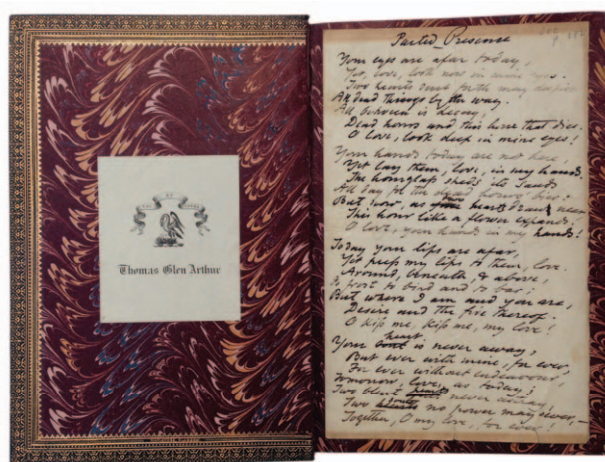 Thomas Glen Arthur
Parted Presence
Your eyes are afar today,
Yet, love, look now in mine eyes.
Two hearts sent forth may despise
All dead things by the way.
All between is decay,
Dead hours and this hour that dies.
O love, look deep in mine eyes!
Your hands today are not here,
Yet lay them, love, in my hands.
The hourglass sheds its sands
All day for the dead hours' bier:
But now, as two hearts draw near
This hour like a flower expands.
O love, your hands in my hands!
Today your lips are afar,
Yet press my lips to them, love.
Around, beneath & above,
Is frost to bind and to bar:
But where I am and you are,
Desire and the fire thereof.
O kiss me, kiss me, my love!
Your heart is never away,
But ever with mine, for ever,
For ever without endeavour,
Tomorrow, love, as today;
Two blent hearts never astray,
Two souls no power may sever,—
Together, O my love, for ever!